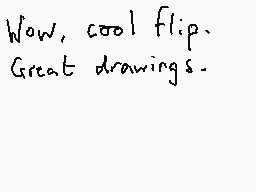 Wow, cool flip.
Great drawings.